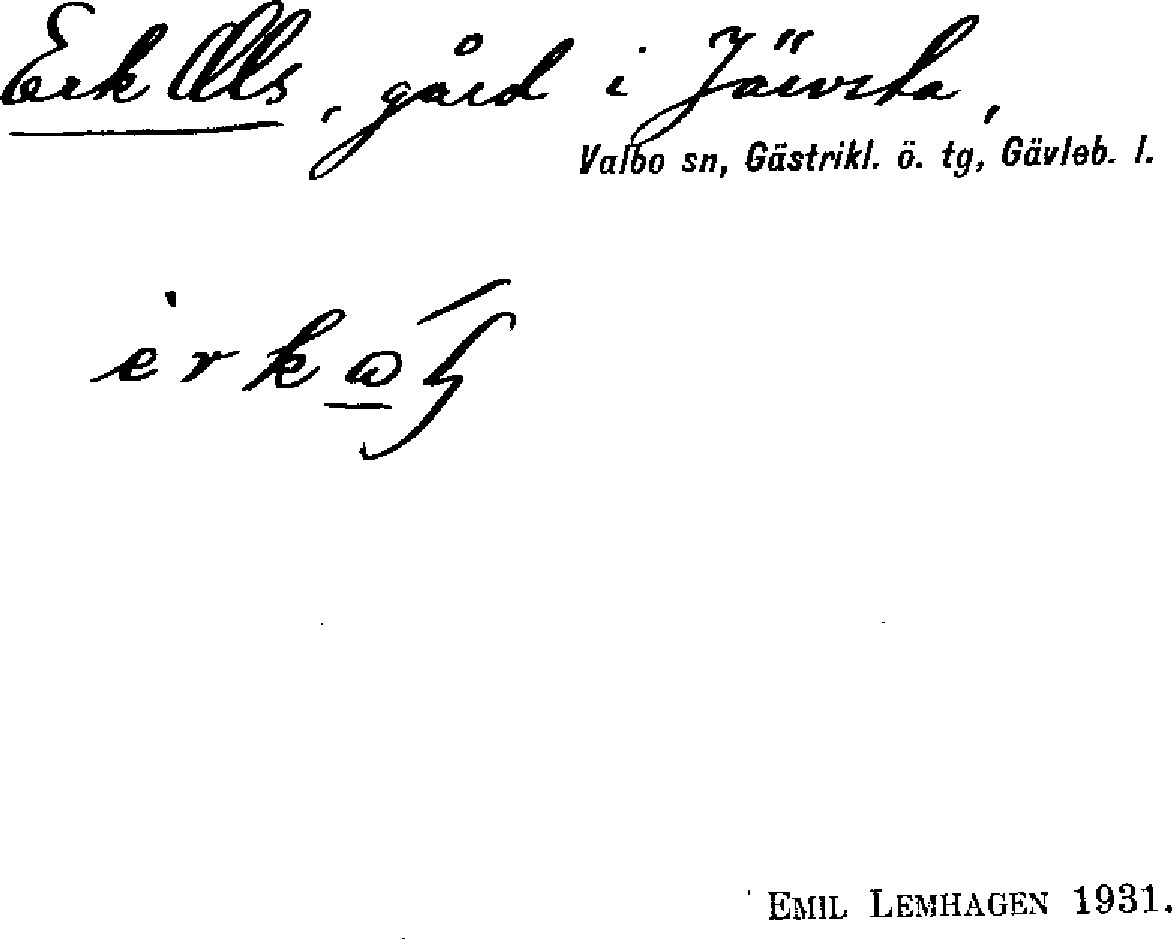 Erk Olls, gård i Järvsta,
Valbo sn, Gästrikl. ö. tg, Gävleb. l.
EMIL LEMHAGEN 1931.